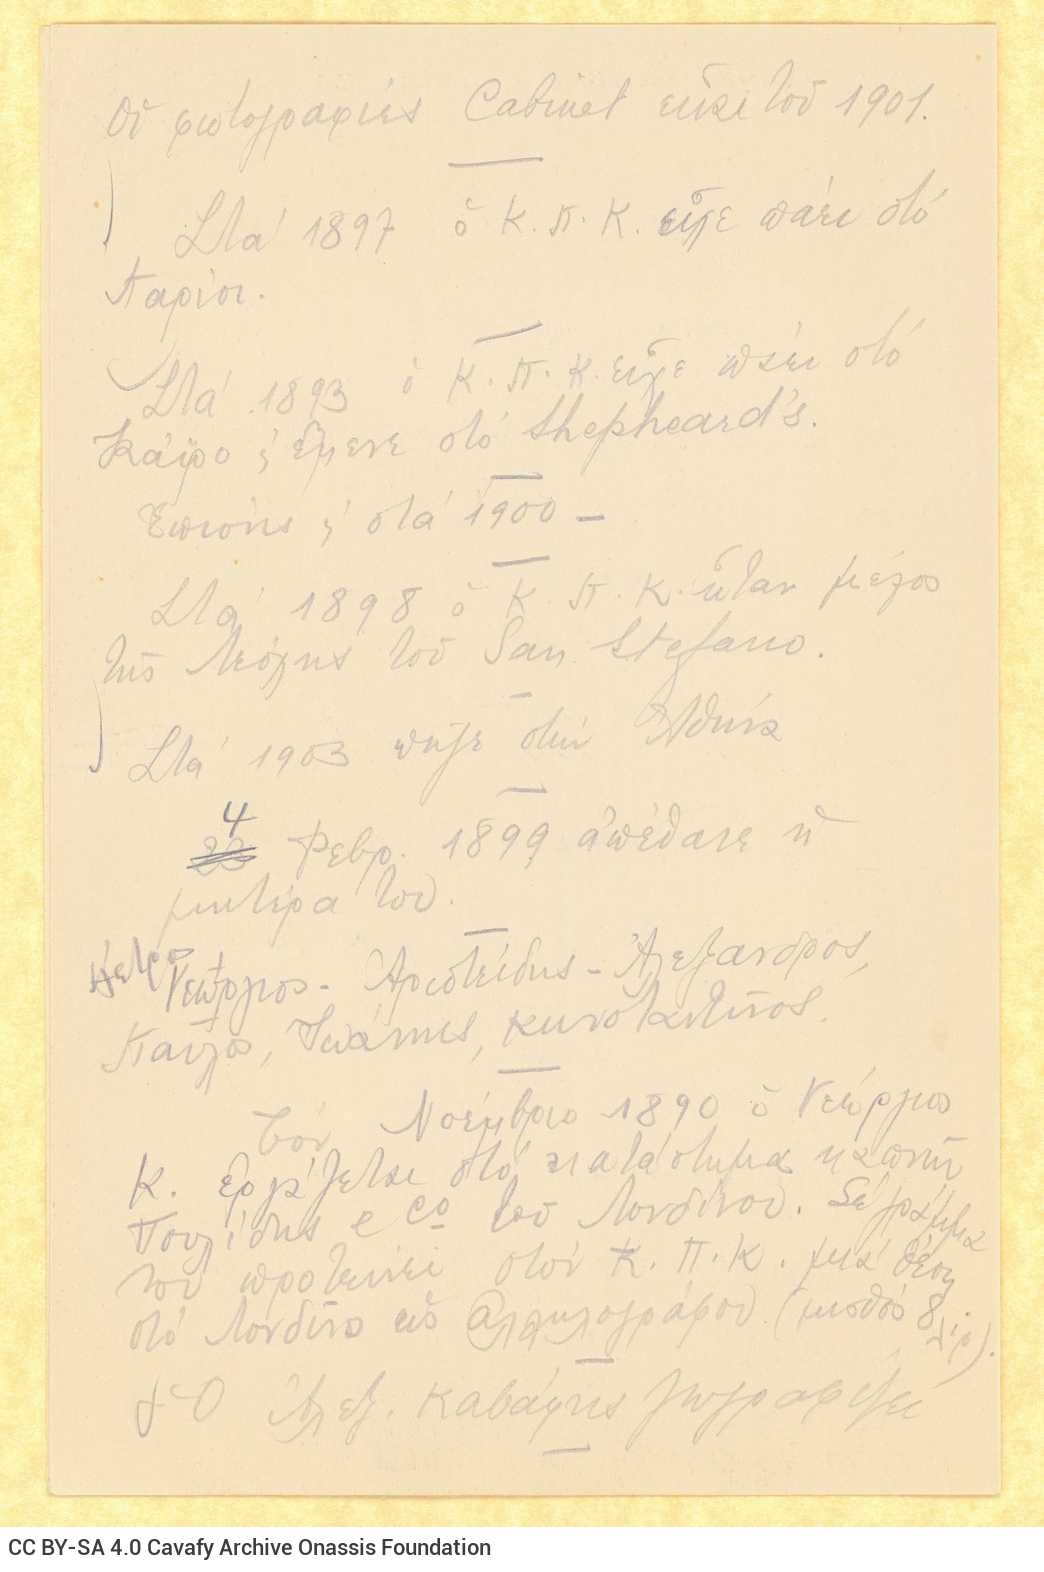 Οἱ φωτογραφίες Cabinet εἶναι τοῦ 1901.
Στά 1897 ὁ Κ. Π. Κ. εἶχε πάει στό
Παρίσι.
Στά 1893 ὁ Κ. Π. Κ. εἶχε πάει στό
Κάϊρο κ' ἔμενε στό Shepheard's.
Ἐπίσης κ' στά 1900 –
Στά 1898 ὁ Κ. Π. Κ. ἦταν μέλος
τῆς Λέσχης τοῦ San Stefano.
Στά 1903 πῆγε στήν Ἀθήνα
4
Φεβρ. 1899 ἀπέθανε ἡ
μητέρα του.
Πέτρος
Γεώργιος - Ἀριστείδης - Ἀλέξανδρος,
Παῦλος, Ἰωάννης, Κωνσταντῖνος.
Τόν Νοέμβριο 1890 ὁ Γεώργιος
Κ. ἐργάζεται στό κατάστημα
Πουλίδης e Co τοῦ Λονδίνου. Σέ γράμμα
του προτείνει στόν Κ. Π. Κ. μιά θέση
στό Λονδῖνο ὡς ἀλληλογράφου (μισθός 8 λίρ).
Ὁ Ἀλεξ. Καβάφης ζωγραφίζει